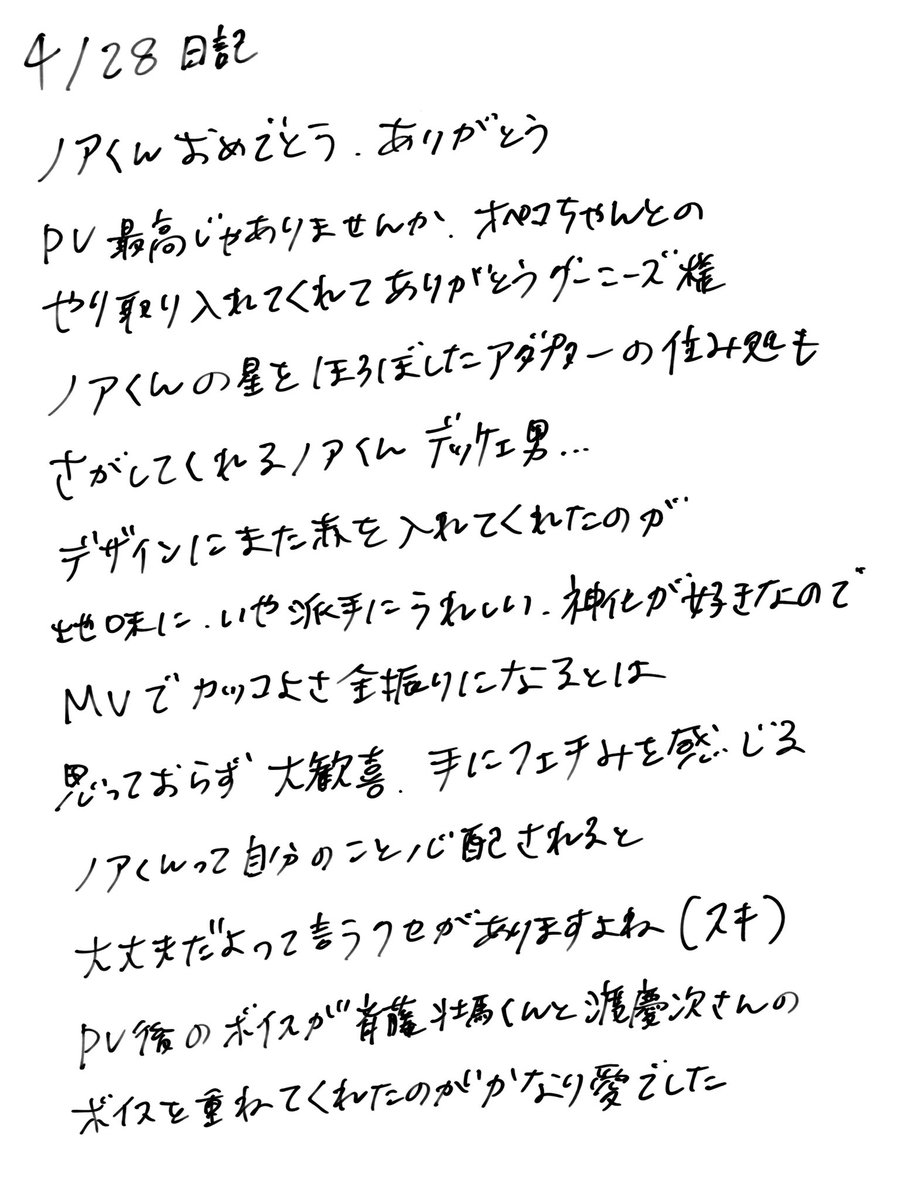 4/28 日記
ノアくんおめでとう.ありがとう
PV最高じゃありませんか.オペコちゃんとの
やり取り入れてくれてありがとうグーニーズ権
ノアくんの星をほろぼしたアダプターの住み処も
さがしてくれるノアくんデッケェ男…
デザインにまた赤を入れてくれたのが
地味に.いや派手にうれしい.神化が好きなので
MVでカッコよさ全振りになるとは
思っておらず大歓喜.手にフェチみを感じる
ノアくんって自分のこと心配されると
大丈夫だよって言うクセがありますよね(スキ)
PV後のボイスが斉藤壮馬くんと渡慶次さんの
ボイスを重ねてくれたのがかなり愛でした